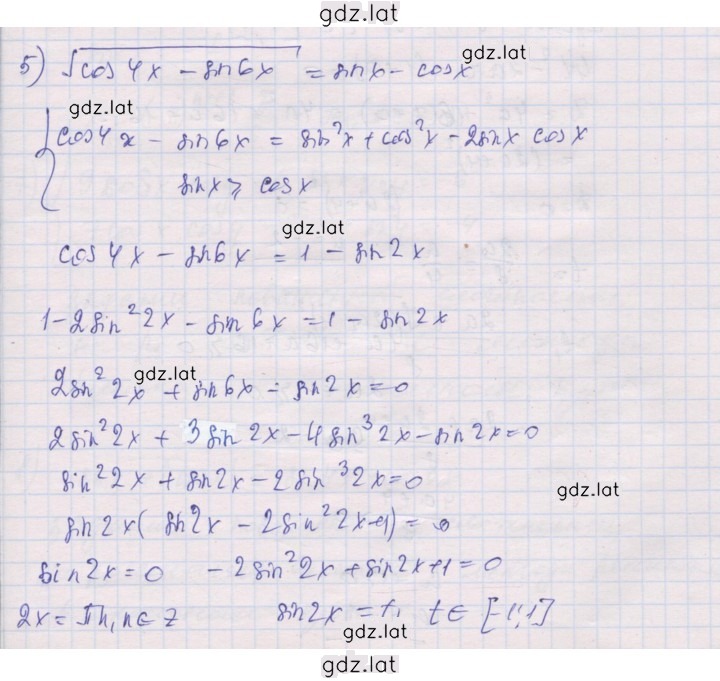 gdz.lat
5) √(cos 4x − sin 6x) = sin x − cos x
gdz.lat
gdz.lat
{ cos 4x − sin 6x = sin²x + cos²x − 2 sin x cos x
sin x ≥ cos x
gdz.lat
cos 4x − sin 6x = 1 − sin 2x
1 − 2 sin² 2x − sin 6x = 1 − sin 2x
gdz.lat
2 sin² 2x + sin 6x − sin 2x = 0
2 sin² 2x + 3 sin 2x − 4 sin³ 2x − sin 2x = 0
sin² 2x + sin 2x − 2 sin³ 2x = 0
gdz.lat
sin 2x ( sin 2x − 2 sin² 2x + 1) = 0
sin 2x = 0   − 2 sin² 2x + sin 2x + 1 = 0
2x = πn, n ∈ Z   sin 2x = t, t ∈ [−1; 1]
gdz.lat
gdz.lat